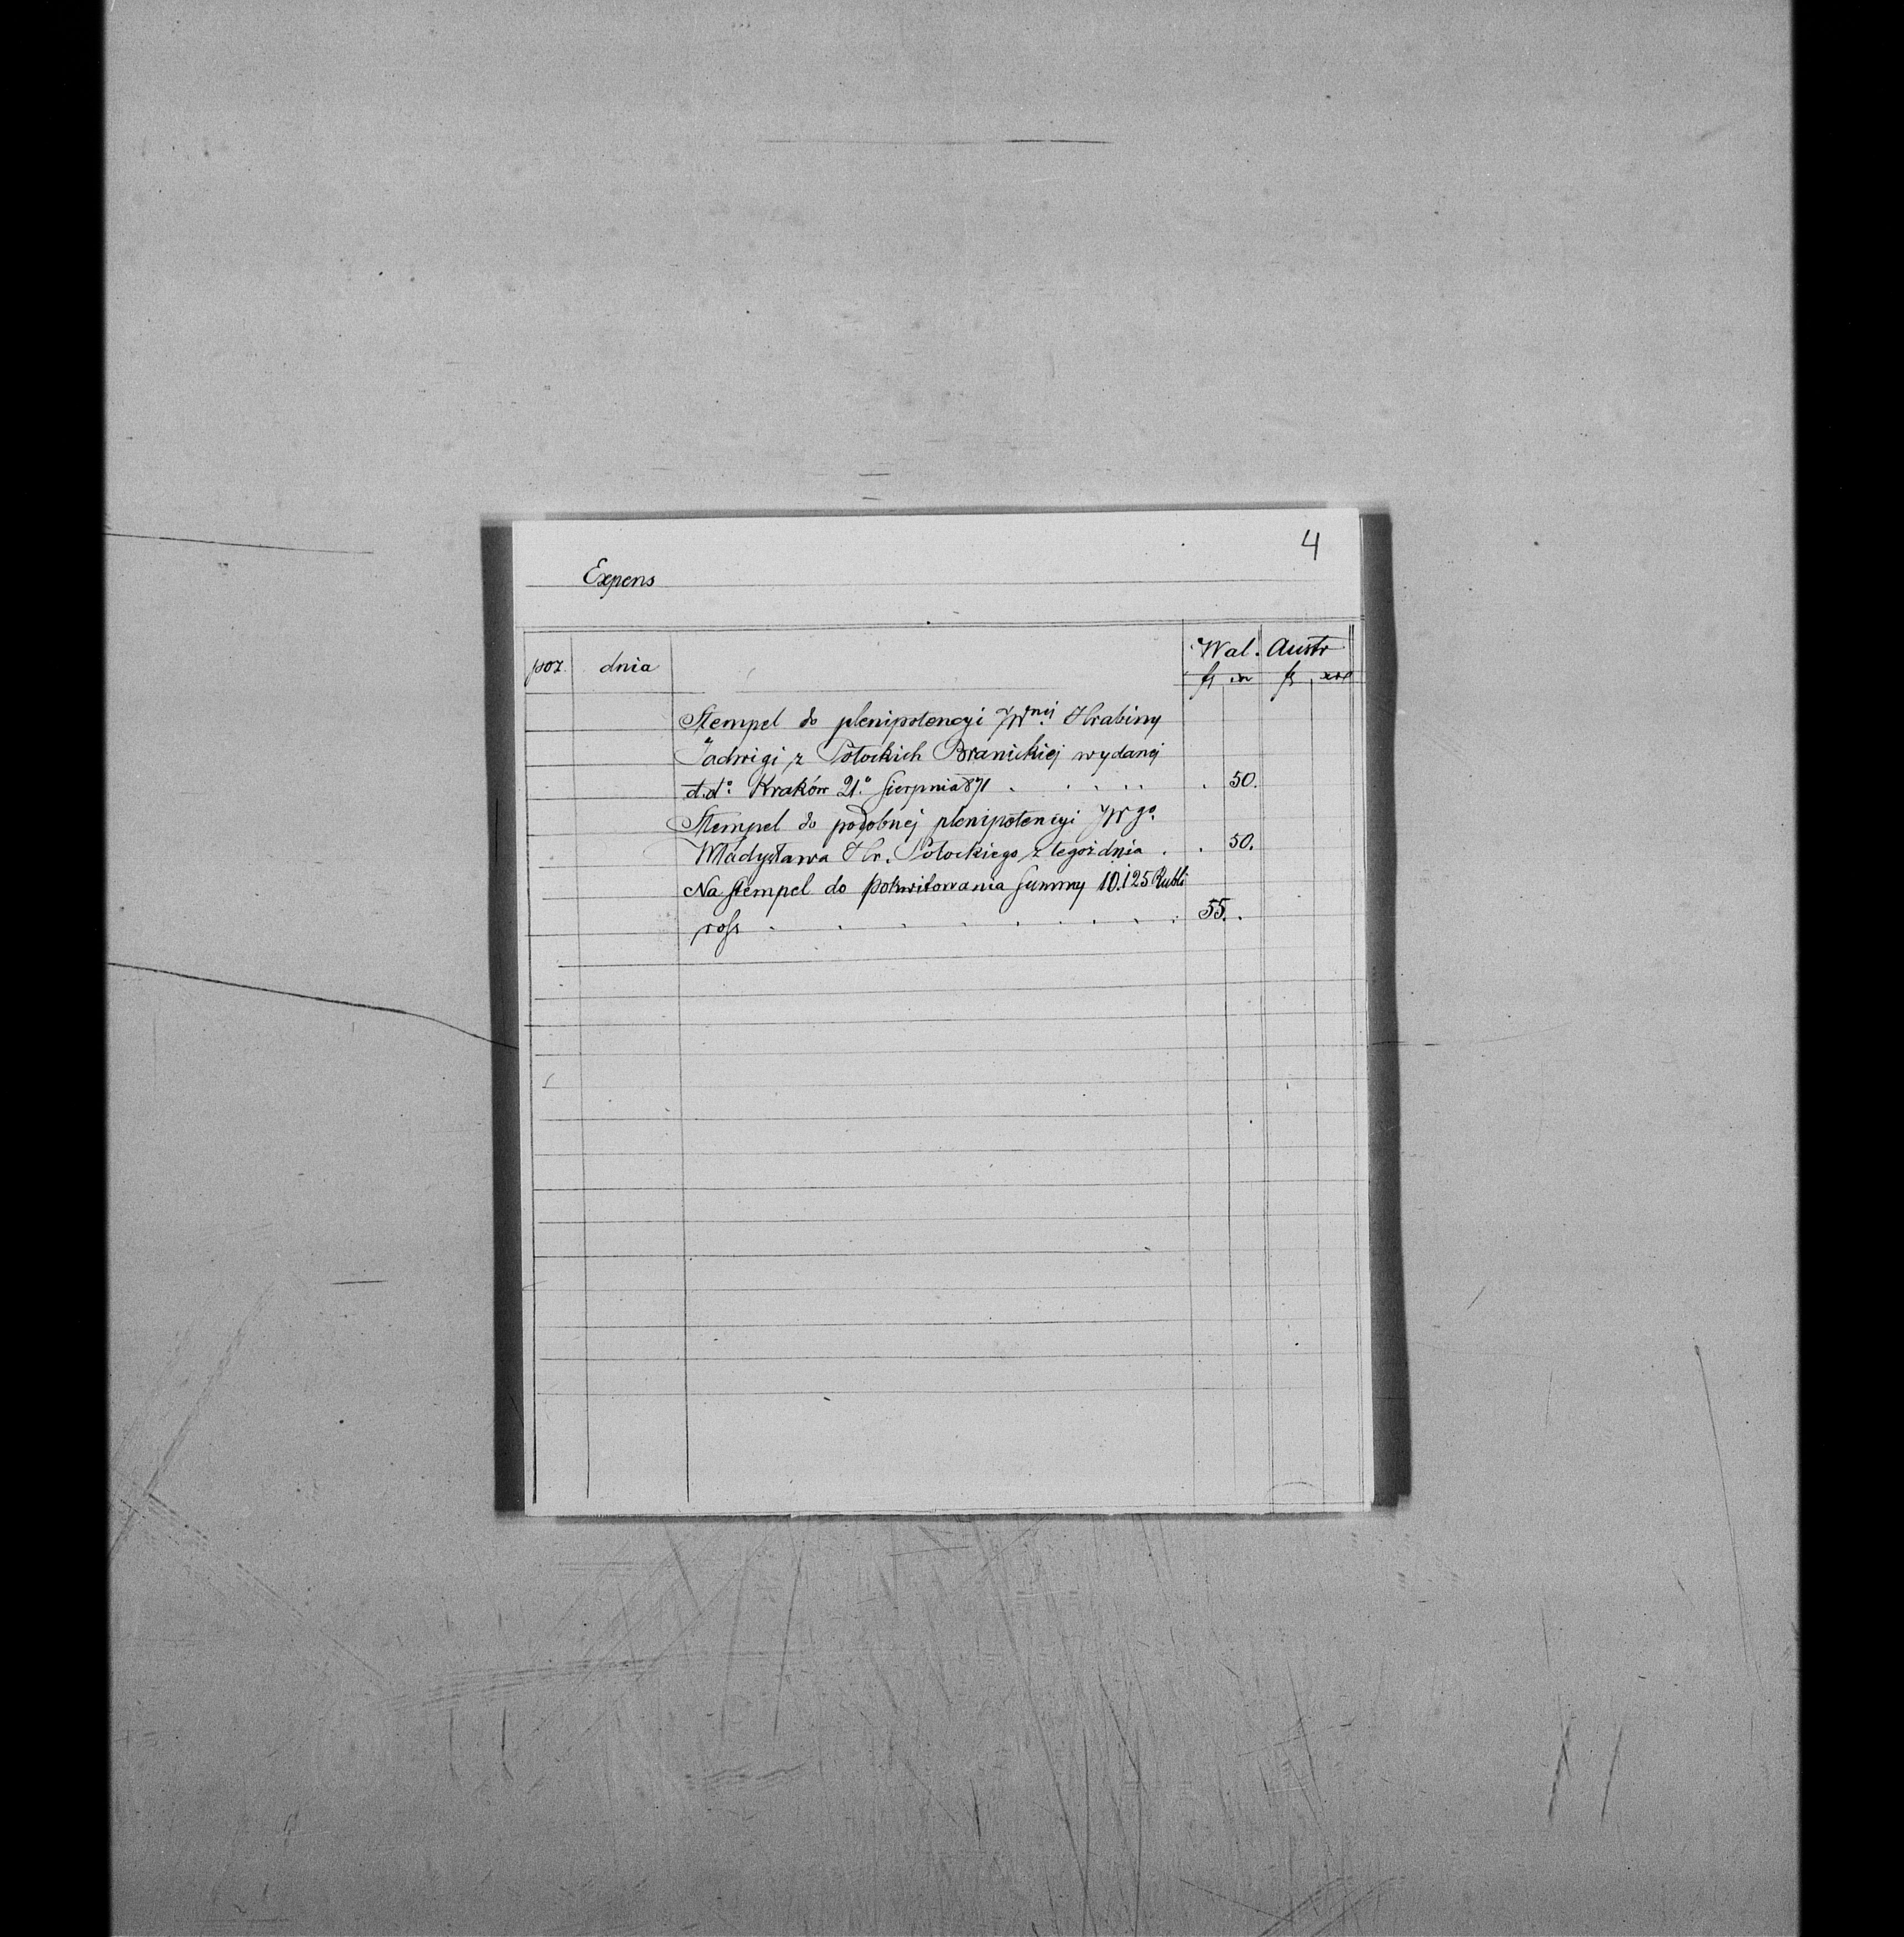 4
Expens
poz. dnia Wal. Austr
fl xr fl xr
Stempel do plenipotencyi JWnej Hrabiny
Jadwigi z Potockich Branickiej wydanej
d.do. Kraków 21o. Sierpnia 871 . . . . . . 50.
Stempel do podobnej plenipotencyi JWgo.
Władysława Hr. Potockiego z tegoż dnia . . 50.
Na stempel do pokwitowania Summy 10.125 Rubli
ross . . . . . . . . . 55. .